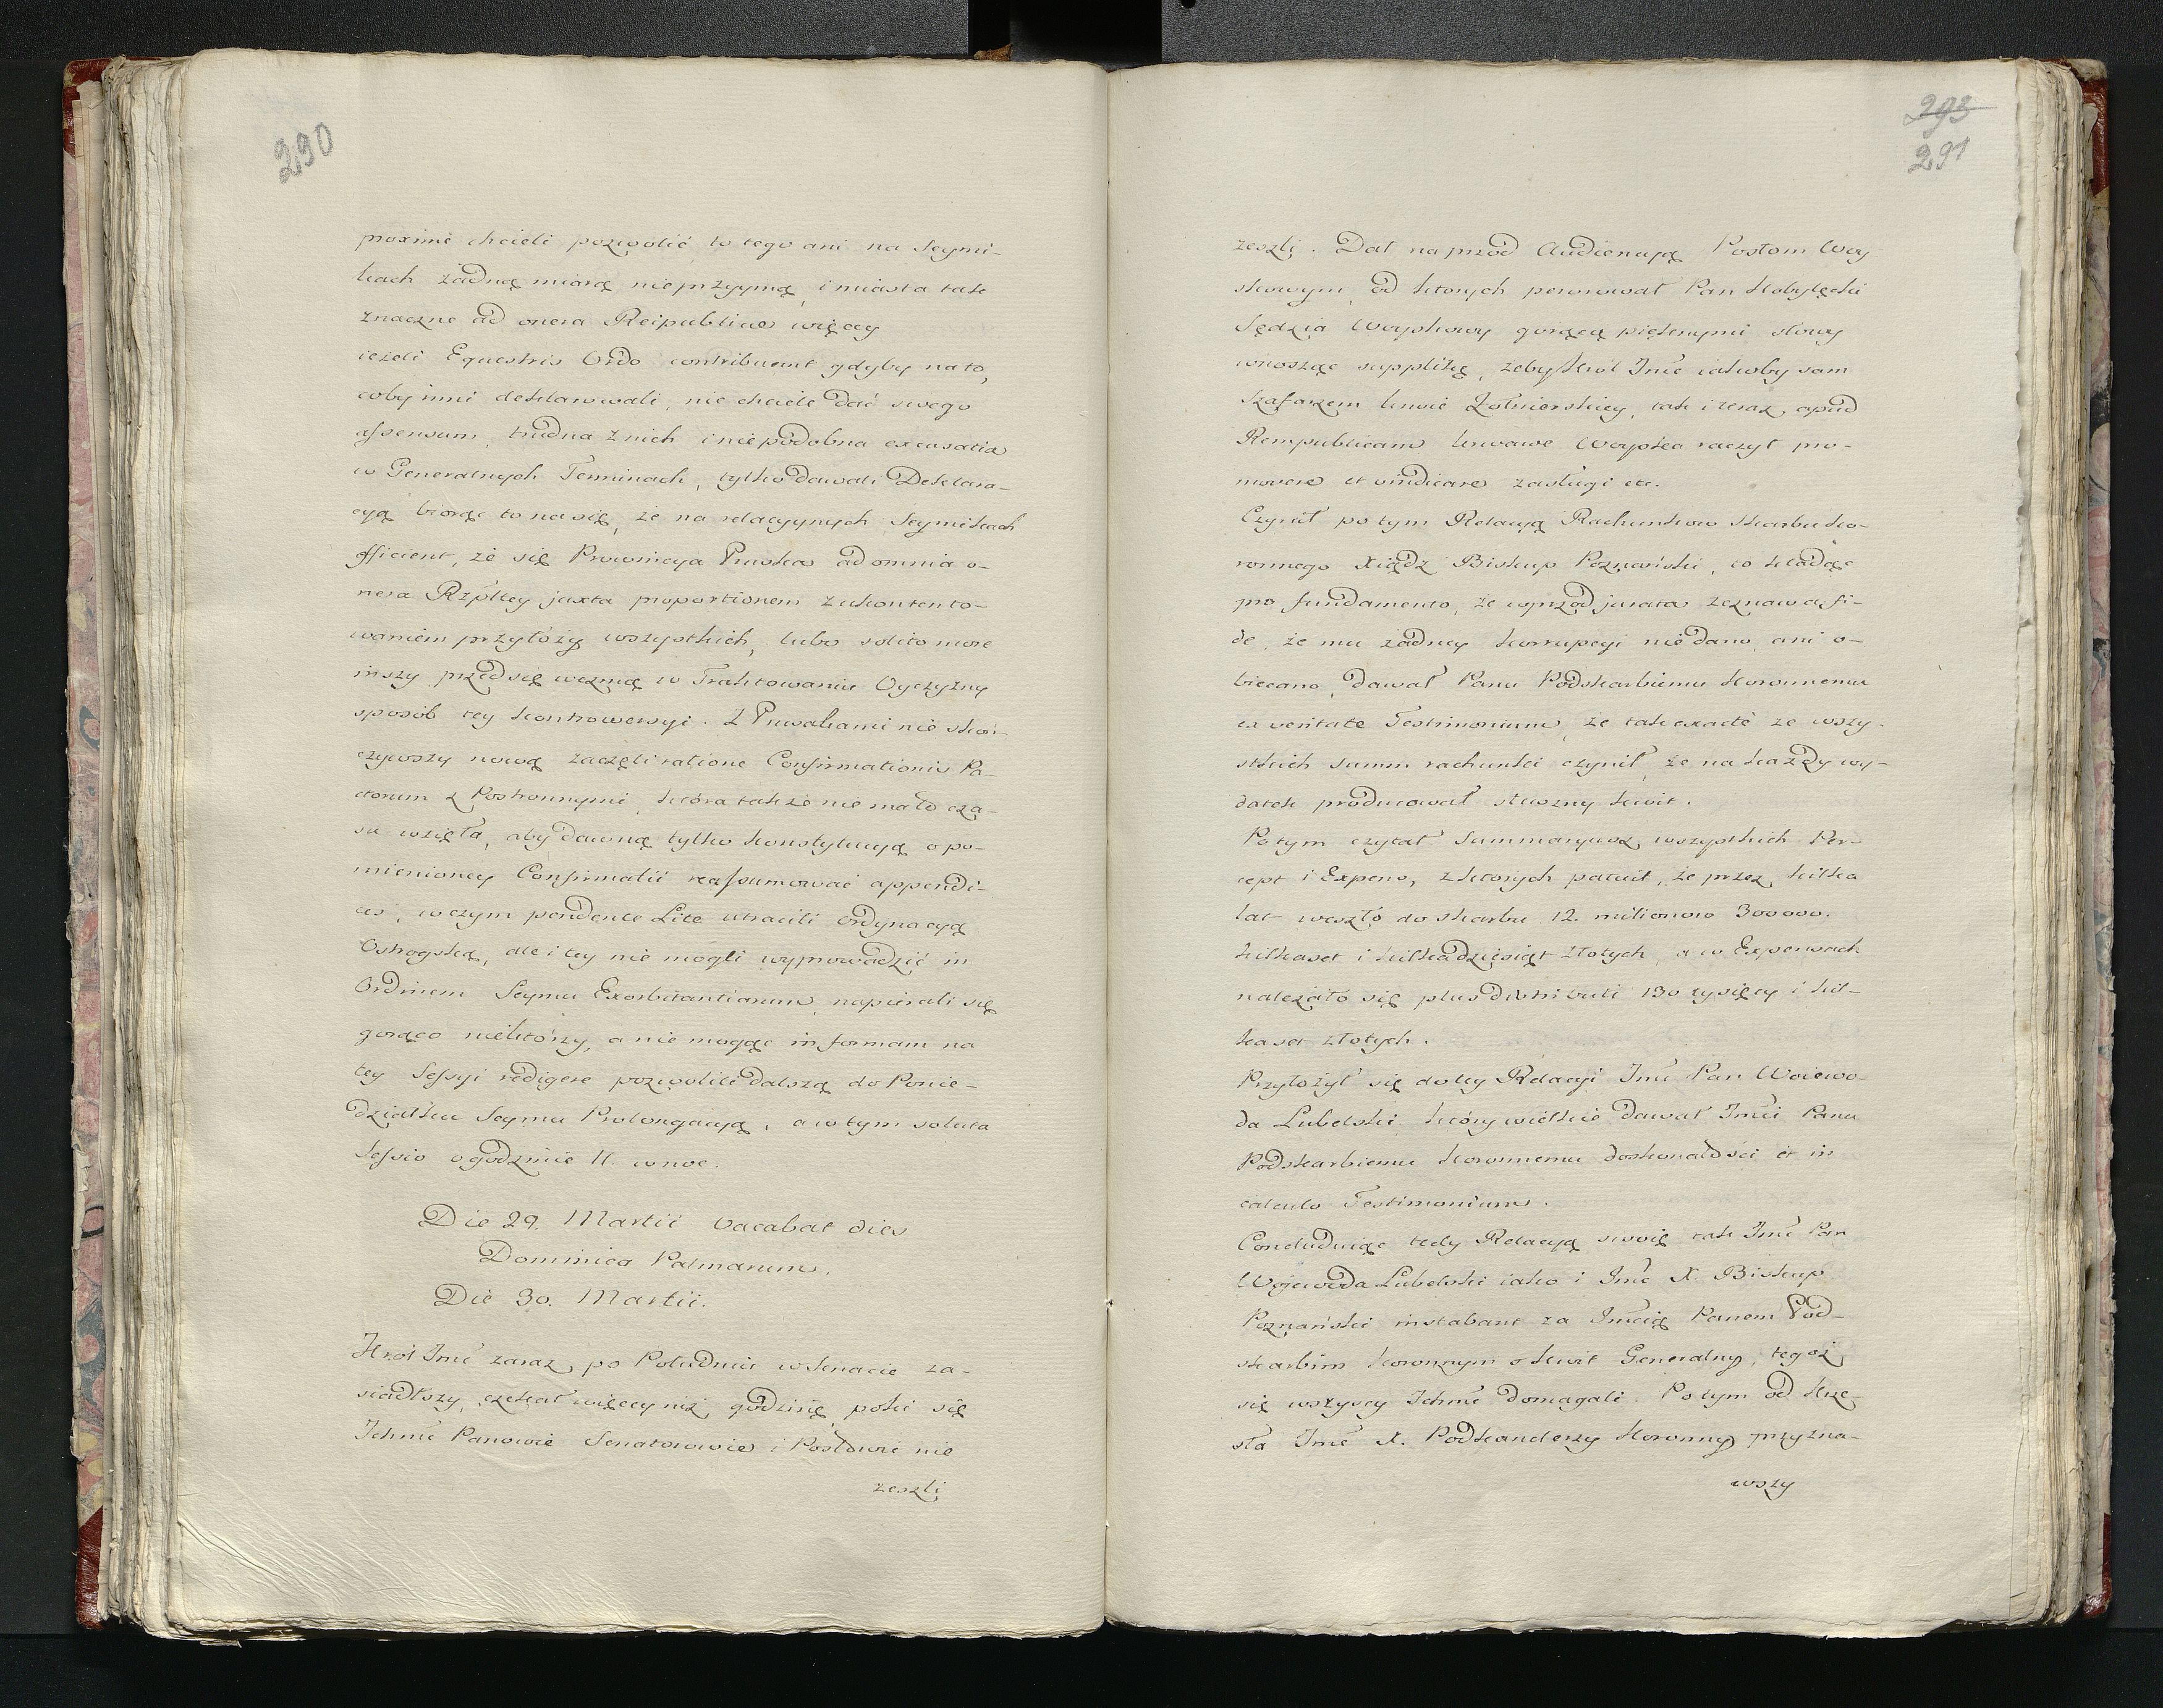 290
proxime chcieli pozwolić to tego ani na Seymi-
kach żadną miarą nie przyymą, i miasta tak
znaczne ad onera Reipublicae więcey
ieżeli Equestris Ordo contribuent gdyby na to,
coby inni deklarowali, nie chcieli dać swego
assensum, trudna z nich i niepodobna excusatia
w Generalnych Terminach, tylko dawali Deklara-
cyą biorąc to na się, że na relacyynych Seymikach
efficient, że się Prowincya Pruska ad omnia o-
nera Rzpltey juxta proportionem z ukontento-
waniem przyłoży wszystkich, lubo solito more
inszy przedsię wezmą w Traktowaniu Oyczyzny
sposób tey kontrowersyi. Z Prusakami nie skoń-
czywszy nową zaczęli ratione Confirmationis Pa-
ctorum z Postronnymi, która także nie mało cza-
su wzięła, aby dawną tylko konstytucyą o po-
mienioney Confirmatii reassumować appendi-
ces, w czym pendente Lite utracili Ordynacyą
Ostrogską, ale i tey nie mogli wyprowadzić in
Ordinem Seymu Exorbitantiarum, napierali się
gorąco niektórzy, a nie mogąc in formam na
tey Sessyi redigere pozwolili dalszą do Ponie-
działku Seymu Prolongacyą, a w tym soluta
Sessio o godzinie 11. w noc.
Die 29. Martii vacabat dies
Dominica Palmarum.
Die 30. Martii.
Król Jmć zaraz po Południu w Senacie za-
siadłszy, czekał więcey niż godzinę poki się
Ichmć Panowie Senatorowie i Posłowie nie
zeszli
293
291
zeszli. Dał naprzód Audiencyą Posłom Woy
skowym, od ktorych perorował Pan Kobyłecki
Sędzia Woyskowy gorącą pięknymi słowy
wnosząc supplikę, żeby Król Jmć iakoby sam
Szafarzem krwie Żołnierskiey, tak i teraz apud
Rempublicam krwawe Woyska raczył pro-
movere et vindicare zasługi etc.
Czynił po tym Relacyą Rachunkow Skarbu Ko-
ronnego Xiądz Biskup Poznański, co kładąc
pro fundamento, że wprzod jurata zeznawa fi-
de, że mu żadney korrupcyi nie dano, ani o-
biecano, dawał Panu Podskarbiemu Koronnemu
ex veritate Testimonium, że tak exactè ze wszy-
stkich summ rachunki czynił, że na każdy wy-
datek producował słuszny kwit.
Potym czytał Summaryusz wszystkich Per-
cept i Expens, z ktorych patuit, że przez kilka
lat weszło do skarbu 12. milionow 300000.
kilkaset i kilkadziesiąt złotych, a w Expensach
należało się plus distributi 130 tysięcy i kil-
kaset złotych.
Przyłożył się do tey Relacyi Jmć Pan Woiewo-
da Lubelski, który wielkie dawał Jmći Panu
Podskarbiemu Koronnemu doskonałości et in
calculo Testimonium.
Concluduiąc tedy Relacyą swoię tak Jmć Pan
Wojewoda Lubelski iako i Jmć X. Biskup
Poznański instabant za Jmcią Panem Pod-
skarbim Koronnym o kwit Generalny, tegoż
się wszyscy Ichmć domagali. Potym od Krze-
sła Jmć X. Podkanclerzy Koronny przyzna-
wszy